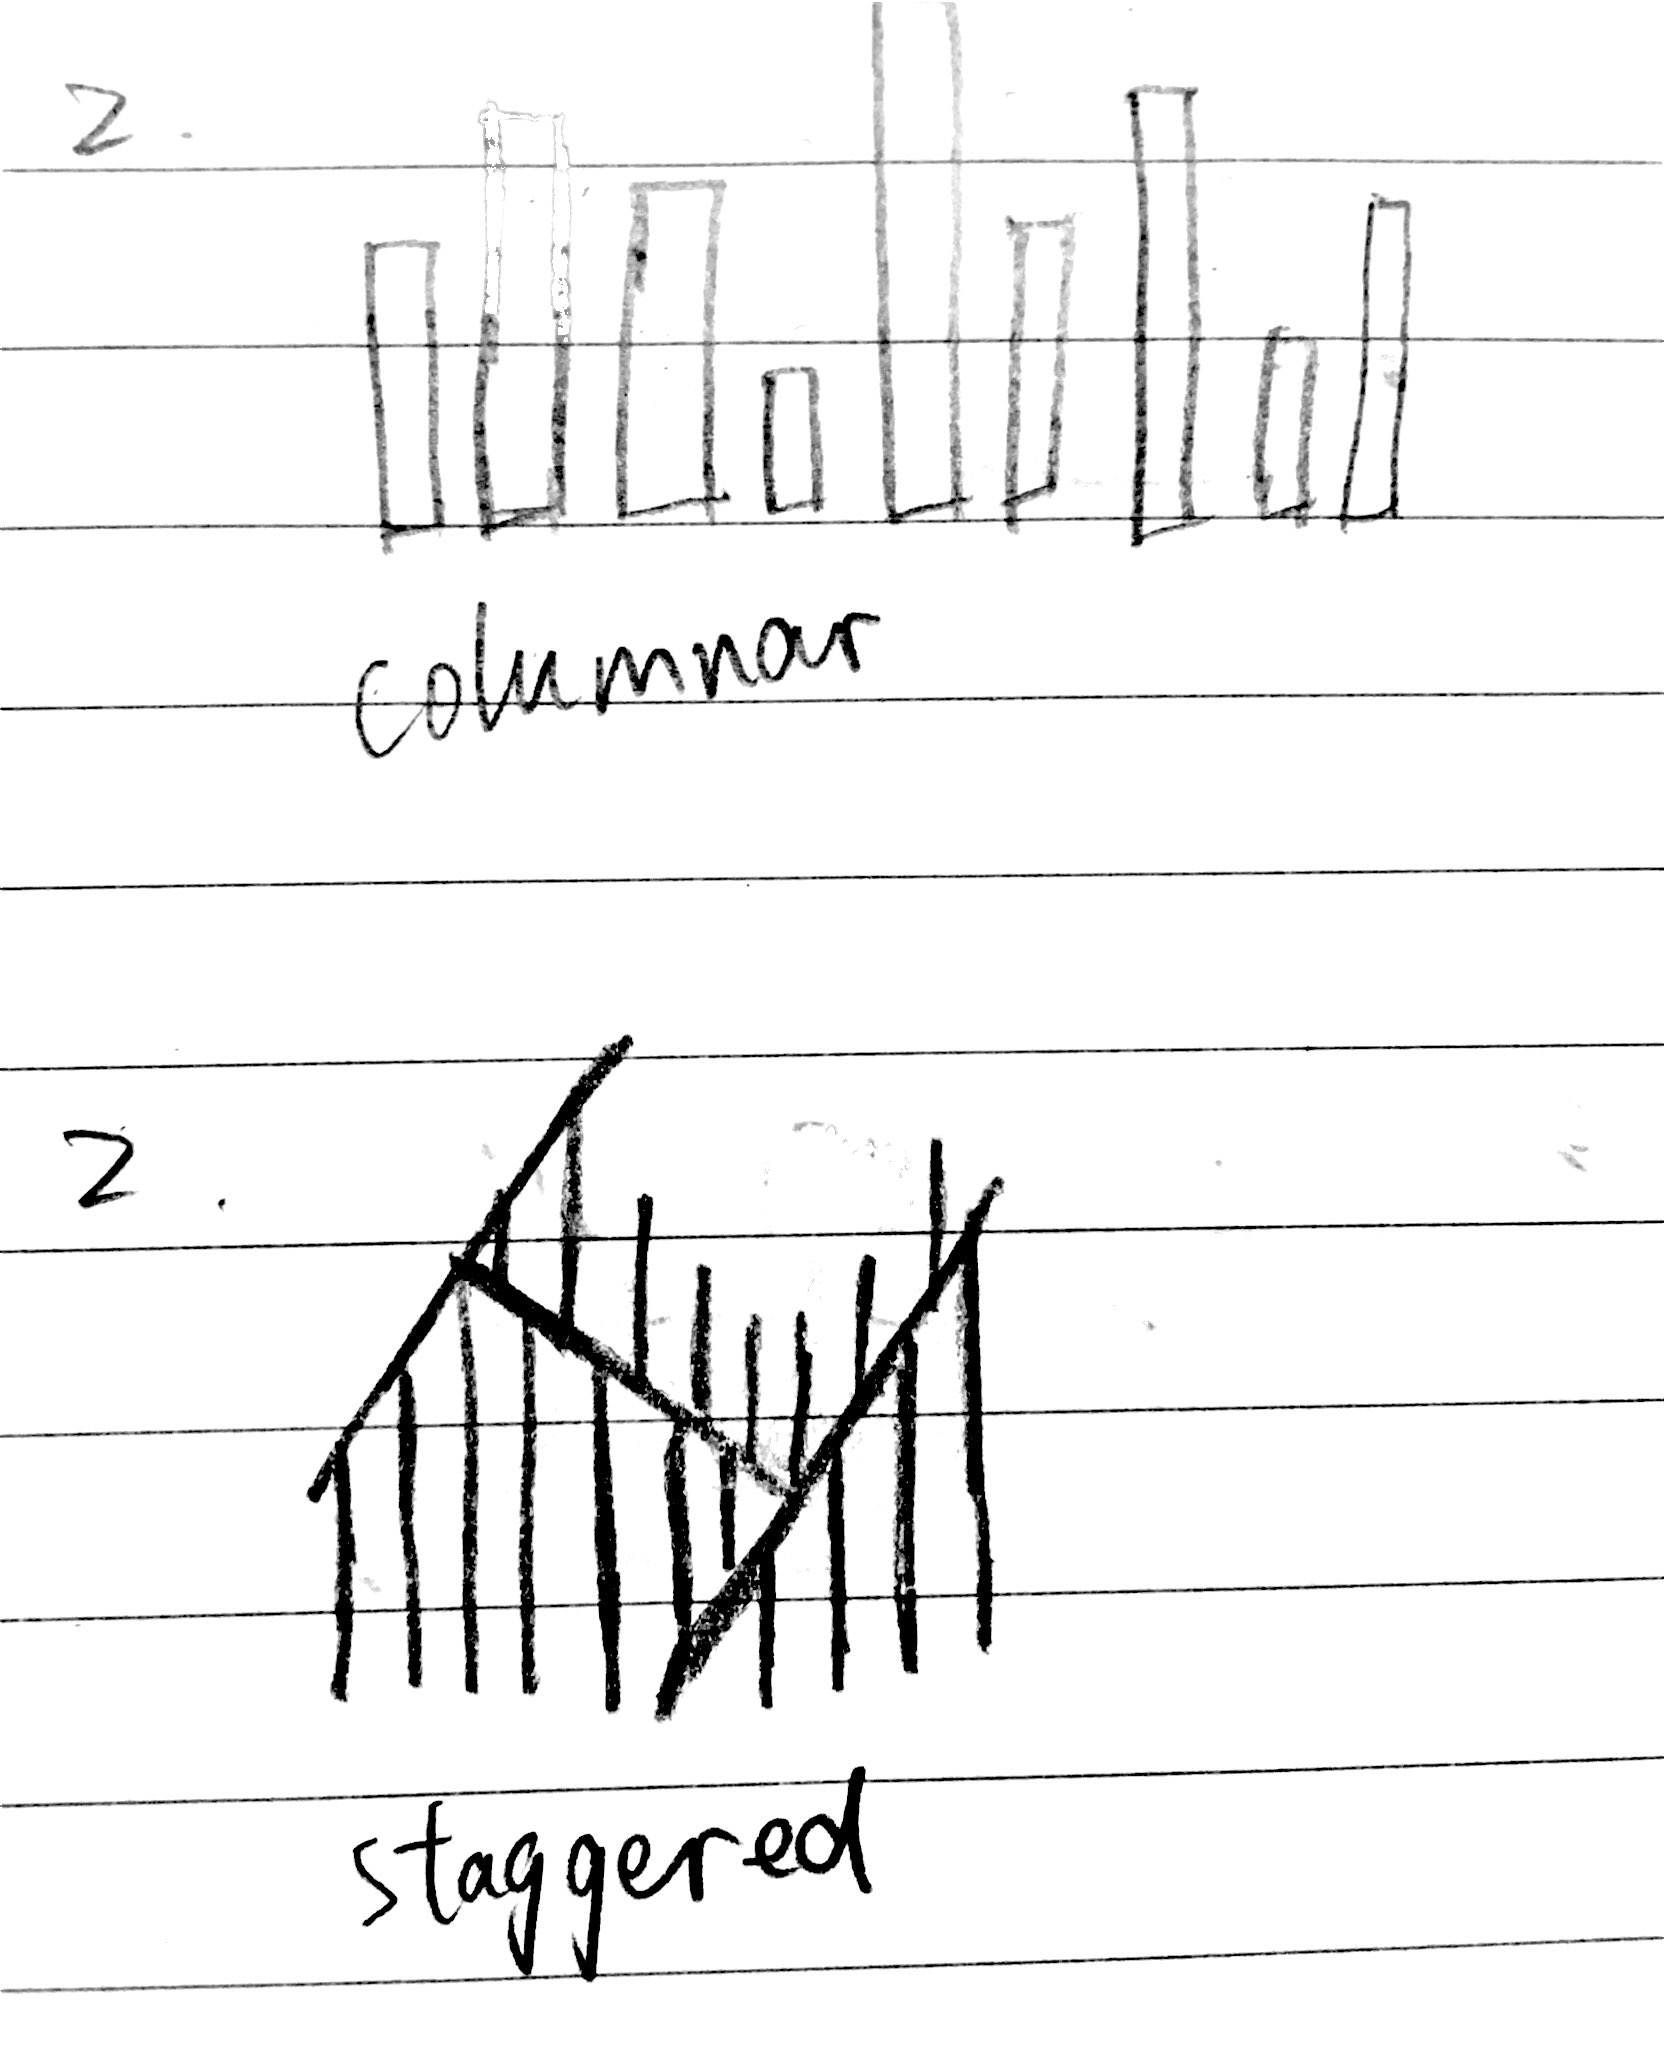 2.
columnar
2.
staggered